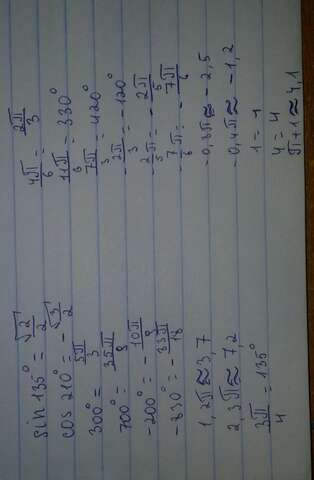 sin 135° = √2/2
cos 210° = -√3/2
300° = 5π/3
700° = 35π/9
-200° = -10π/9
-830° = -83π/18
1,2π ≈ 3,7
2,3π ≈ 7,2
3π/4 = 135°
4π/6 = 2π/3
11π/6 = 330°
7π/3 = 420°
-2π/3 = -120°
-2/5π = -2π/5
-7/6π = -7π/6
-0,8π ≈ -2,5
-0,4π ≈ -1,2
1 = 1
4 = 4
π+1 ≈ 4,1